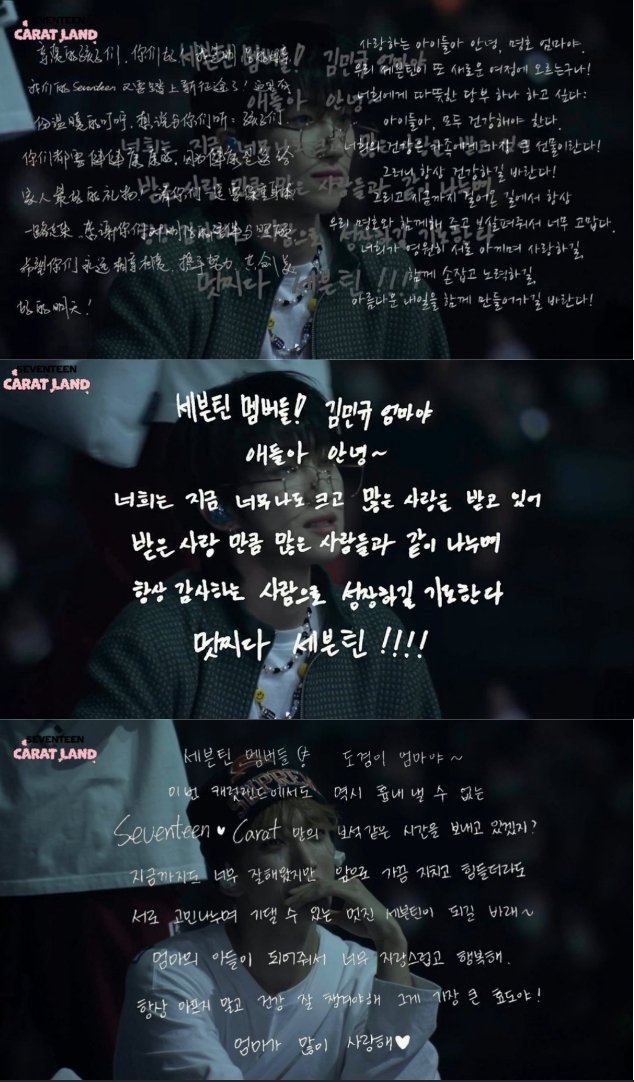 SEVENTEEN
CARAT LAND
亲爱的孩子们,你们好!
我们的Seventeen 又要踏上新征途了!
份温暖的叮咛,想说与你们听:孩子们,
你们都要健健康康的,因为健康是送给
家人最好的礼物!你们一定要保重身体
一路走来,感谢你们对明浩的陪伴与照顾
希望你们永远相亲相爱,携手努力,共创美
好的明天!
사랑하는 아이들아 안녕, 명호 엄마야.
우리 세븐틴이 또 새로운 여정에 오르는구나!
너희에게 따뜻한 당부 하나 하고 싶다:
아이들아, 모두 건강해야 한다.
너희의 건강은 가족에게 가장 큰 선물이란다!
그러니 항상 건강하길 바란다!
그리고 지금까지 걸어온 길에서 항상
우리 명호와 함께해 주고 보살펴줘서 너무 고맙다.
너희가 영원히 서로 아끼며 사랑하길,
함께 손잡고 노력하길,
아름다운 내일을 함께 만들어가길 바란다!
SEVENTEEN
CARAT LAND
세븐틴 멤버들! 김민규 엄마야
애들아 안녕~
너희는 지금 너무나도 크고 많은 사랑을 받고 있어
받은 사랑 만큼 많은 사람들과 같이 나누며
항상 감사하는 사람으로 성장하길 기도한다
멋찌다 세븐틴 !!!!
SEVENTEEN
CARAT LAND
세븐틴 멤버들 도겸이 엄마야~
이번 캐럿랜드에서도 역시 흉내 낼 수 없는
Seventeen♥Carat 만의 보석같은 시간을 보내고 있겠지?
지금까지도 너무 잘해왔지만 앞으로 가끔 지치고 힘들더라도
서로 고민나누며 기댈 수 있는 멋진 세븐틴이 되길 바래~
엄마의 아들이 되어줘서 너무 자랑스럽고 행복해.
항상 아프지 말고 건강 잘 챙겨야해 그게 가장 큰 효도야!
엄마가 많이 사랑해♥